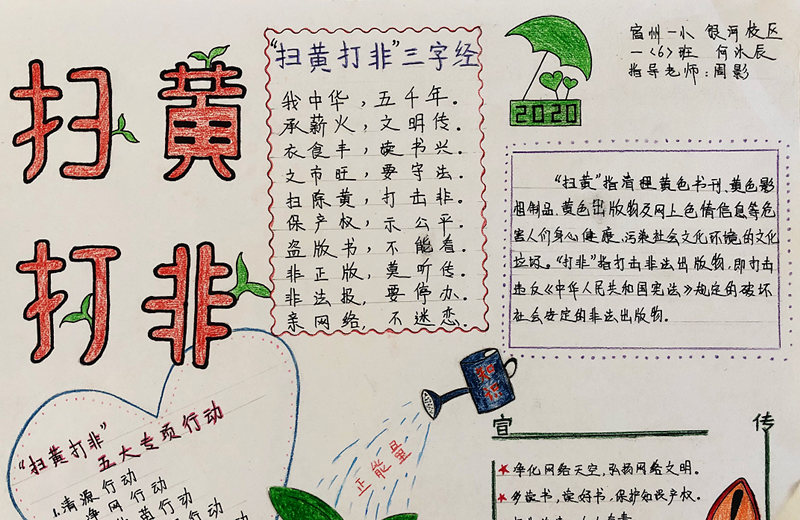 扫黄
打非
"扫黄打非"三字经
我中华，五千年。
承薪火，文明传。
衣食丰，读书兴。
文市旺，要守法。
扫除黄，打击非。
保产权，示公平。
盗版书，不能看。
非正版，莫听传。
非法报，要停办。
亲网络，不迷恋
2020
宿州一小 银河校区
一〈6〉班 何沐辰
指导老师：周影
"扫黄"指清理黄色书刊、黄色影
相制品、黄色出版物及网上色情信息等危
害人们身心健康、污染社会文化环境的文化
垃圾。"打非"指打击非法出版物，即打击
违反《中华人民共和国宪法》规定的破坏
社会安定的非法出版物。
"扫黄打非"
五大专项行动
1.清源行动
净网行动
苗行动
行动
知识
正能量
宣传
★净化网络天空，弘扬网络文明。
★多读书，读好书，保护知识产权。